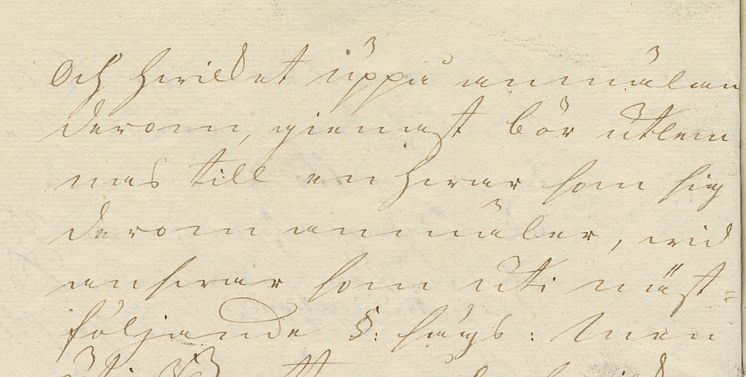 Och hvilket uppå anmälan
derom, genast bör utlem
nas till en hvar som sig
derom anmäler, vid
ansvar som uti näst=
följande §: sägs: Men